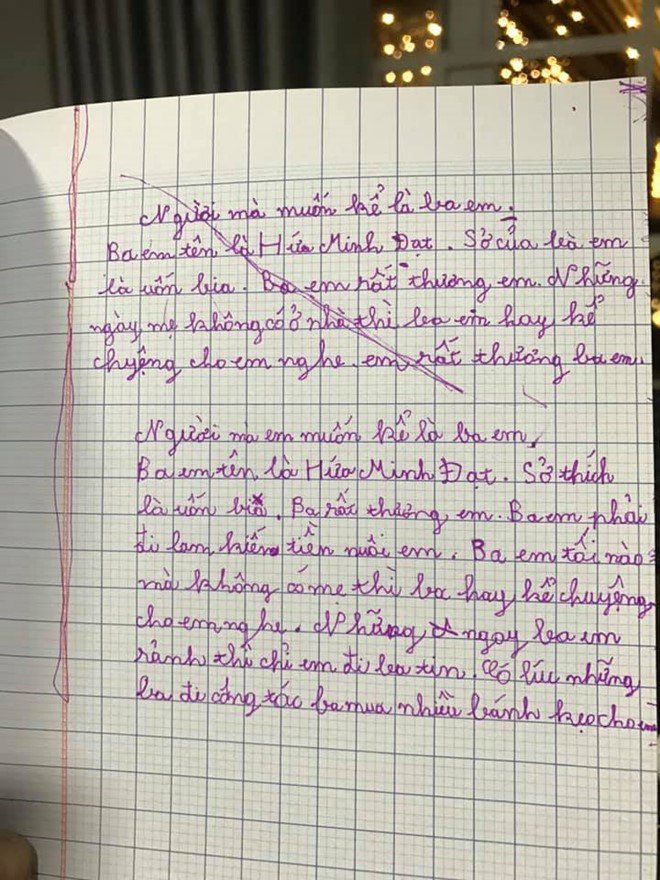 Người mà muốn kể là ba em.
Ba em tên là Hứa Minh Đạt. Sở của ba em
là uốn bia. Ba em rất thương em. Những
ngày mẹ không có ở nhà thì ba em hay kể
chuyệng cho em nghe. em rất thương ba em.
Người mà em muốn kể là ba em.
Ba em tên là Hứa Minh Đạt. Sở thích
là uốn bia. Ba rất thương em. Ba em phải
đi lam kiếm tiền nuôi em. Ba em tối nào
mà không có mẹ thì ba hay kể chuyệng
cho em nghe. Những ngay ba em
rảnh thì chỉ em đi ba tin. Có lúc những
ba đi công tác ba mua nhiều bánh kẹo cho em